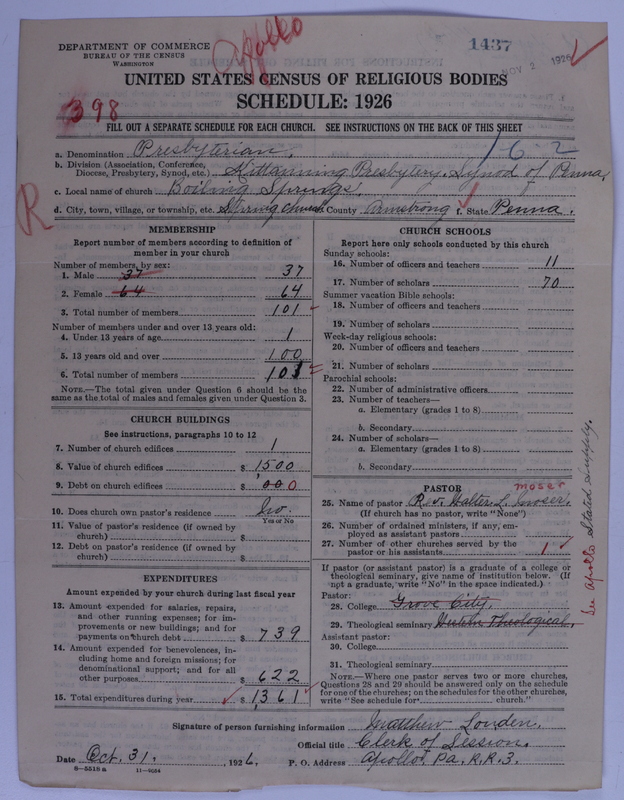 Apollo
1437
NOV 2 1926
DEPARTMENT OF COMMERCE
BUREAU OF THE CENSUS
WASHINGTON
UNITED STATES CENSUS OF RELIGIOUS BODIES
SCHEDULE: 1926
398
FILL OUT A SEPARATE SCHEDULE FOR EACH CHURCH. SEE INSTRUCTIONS ON THE BACK OF THIS SHEET
162
a. Denomination Presbyterian.
b. Division (Association, Conference,
Diocese, Presbytery, Synod, etc.) Kittanning Presbytery. Synod of Penna,
c. Local name of church Boiling Springs.
d. City, town, village, or township, etc. Spring Church County Armstrong f. State Penna.
R
MEMBERSHIP
Report number of members according to definition of
member in your church
Number of members, by sex:
1. Male 37 37
2. Female 64 64
3. Total number of members 101
Number of members under and over 13 years old:
4. Under 13 years of age 1
5. 13 years old and over 100
6. Total number of members 101
NOTE.—The total given under Question 6 should be the
same as the total of males and females given under Question 3.
CHURCH BUILDINGS
See instructions, paragraphs 10 to 12
7. Number of church edifices 1
8. Value of church edifices $ 1500
9. Debt on church edifices $ 000
10. Does church own pastor's residence No.
Yes or No
11. Value of pastor's residence (if owned by
church) $
12. Debt on pastor's residence (if owned by
church) $
EXPENDITURES
Amount expended by your church during last fiscal year
13. Amount expended for salaries, repairs,
and other running expenses; for im-
provements or new buildings; and for
payments on church debt $ 739
14. Amount expended for benevolences, in-
cluding home and foreign missions; for
denominational support; and for all
other purposes $ 622
15. Total expenditures during year $ 1,361
CHURCH SCHOOLS
Report here only schools conducted by this church
Sunday schools:
16. Number of officers and teachers 11
17. Number of scholars 70
Summer vacation Bible schools:
18. Number of officers and teachers
19. Number of scholars
Week-day religious schools:
20. Number of officers and teachers
21. Number of scholars
Parochial schools:
22. Number of administrative officers
23. Number of teachers—
a. Elementary (grades 1 to 8)
b. Secondary
24. Number of scholars—
a. Elementary (grades 1 to 8)
b. Secondary
PASTOR
moser
25. Name of pastor Rev. Walter L. Moser.
(If church has no pastor, write "None")
26. Number of ordained ministers, if any, em-
ployed as assistant pastors
27. Number of other churches served by the
pastor or his assistants 1
If pastor (or assistant pastor) is a graduate of a college or
theological seminary, give name of institution below. (If
not a graduate, write "No" in the space indicated.)
Pastor:
28. College Grove City.
29. Theological seminary Theological.
Assistant pastor:
30. College
31. Theological seminary
NOTE.—Where one pastor serves two or more churches,
Questions 28 and 29 should be answered only on the schedule
for one of the churches; on the schedules for the other churches,
write "See schedule for church."
See Apollo Stated Supply.
Signature of person furnishing information Matthew Louden.
Official title Clerk of Session.
Date Oct. 31. , 1926. P. O. Address Apollo, Pa. R.R.3.
8—5518a 11—9054